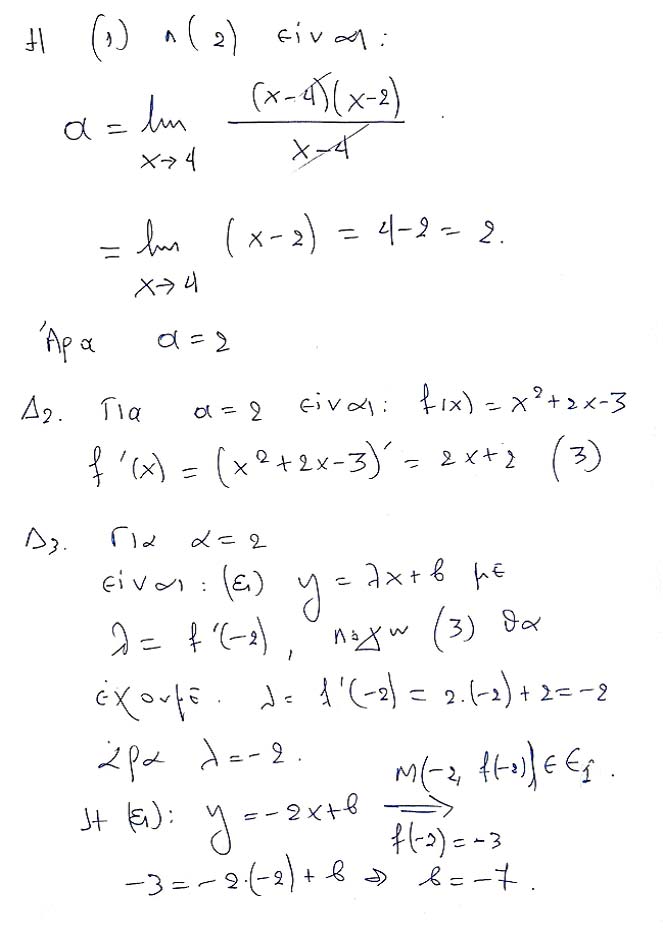 Η (1) λ (2) είναι:
α = lim (x-4)(x-2) / x-4
x→4
= lim (x-2) = 4-2 = 2.
x→4
Άρα α = 2
Δ2. Για α = 2 είναι: f(x) = x² + 2x - 3
f'(x) = (x² + 2x - 3)' = 2x + 2 (3)
Δ3. Για α = 2
είναι: (ε₁) y = λx + β με
λ = f'(-2), λόγω (3) θα
έχουμε. λ = f'(-2) = 2.(-2) + 2 = -2
άρα λ = -2.
Η (ε₁): y = -2x + β ⟹ M(-2, f(-2)) ∈ ε₁.
f(-2) = -3
-3 = -2·(-2) + β ⇒ β = -7.